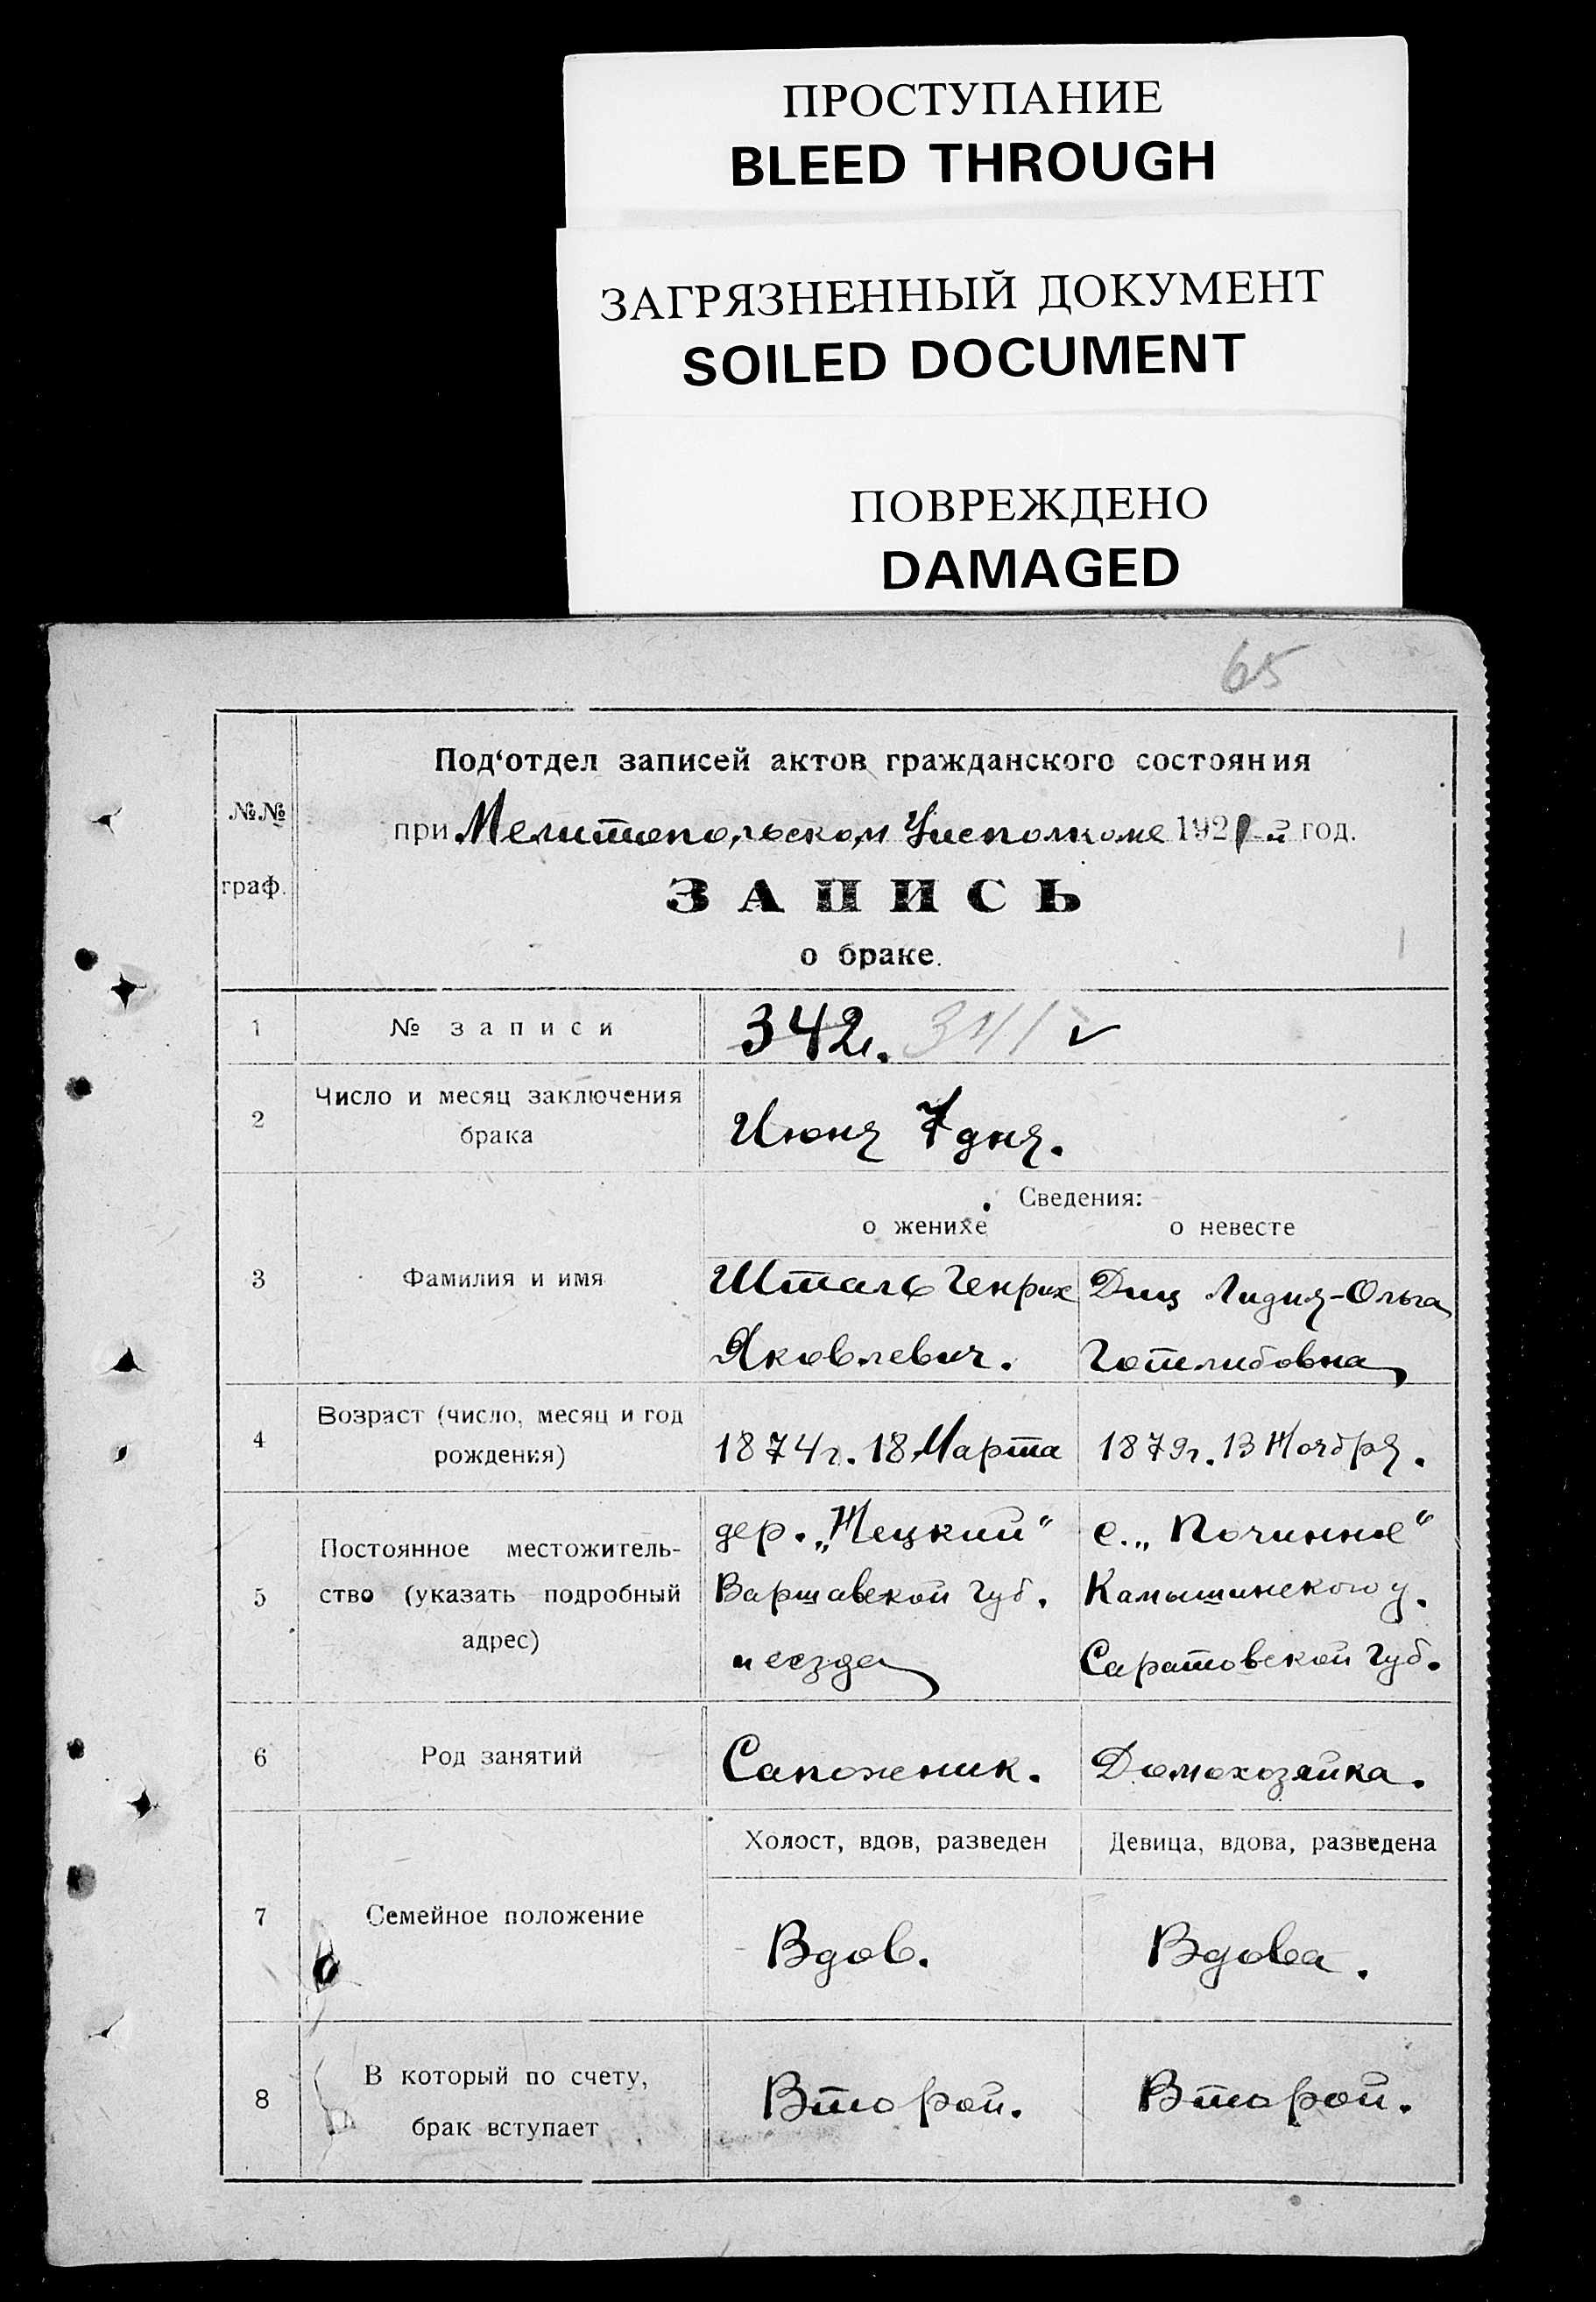 ПРОСТУПАНИЕ
BLEED THROUGH
ЗАГРЯЗНЕННЫЙ ДОКУМЕНТ
SOILED DOCUMENT
ПОВРЕЖДЕНО
DAMAGED
65
№№
граф.
Под‘отдел записей актов гражданского состояния
при Мелитопольском Уисполкоме 1921-й год.
ЗАПИСЬ
о браке.
1 № записи 342. 341 ✓
2 Число и месяц заключения
брака
Июня 7 дня.
Сведения:
о женихе о невесте
3 Фамилия и имя
Шталь Генрих Диц Лидия-Ольга
Яковлевич. Готлибовна
4 Возраст (число, месяц и год
рождения)
1874г. 18 Марта 1879г. 13 Ноября.
5 Постоянное местожитель-
ство (указать подробный
адрес)
дер. „Нецкий“ с. „Починное“
Варшавской губ. Камышинского у.
и еезда Саратовской губ.
6 Род занятий Сапожник. Домохозяйка.
Холост, вдов, разведен Девица, вдова, разведена
7 Семейное положение
Вдов. Вдова.
8 В который по счету,
брак вступает
Второй. Второй.